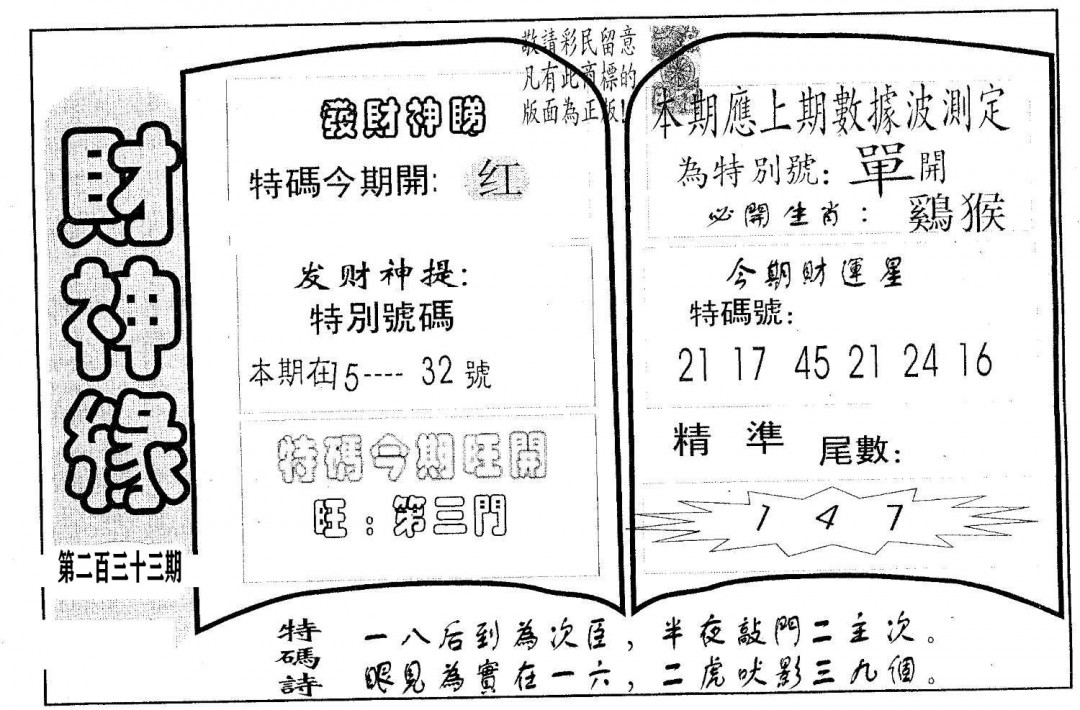 財神緣
第二百三十三期
敬請彩民留意
凡有此商標的
版面為正版!
發財神睇
特碼今期開: 红
发财神提:
特別號碼
本期在15---- 32號
特碼今期旺開
旺:第三門
本期應上期數據波測定
為特別號:單開
必開生肖:鷄猴
今期財運星
特碼號:
21 17 45 21 24 16
精準 尾數:
1 4 7
特碼詩
一八后到為次臣,半夜敲門二主次。
眼見為實在一六,二虎吠影三九個。